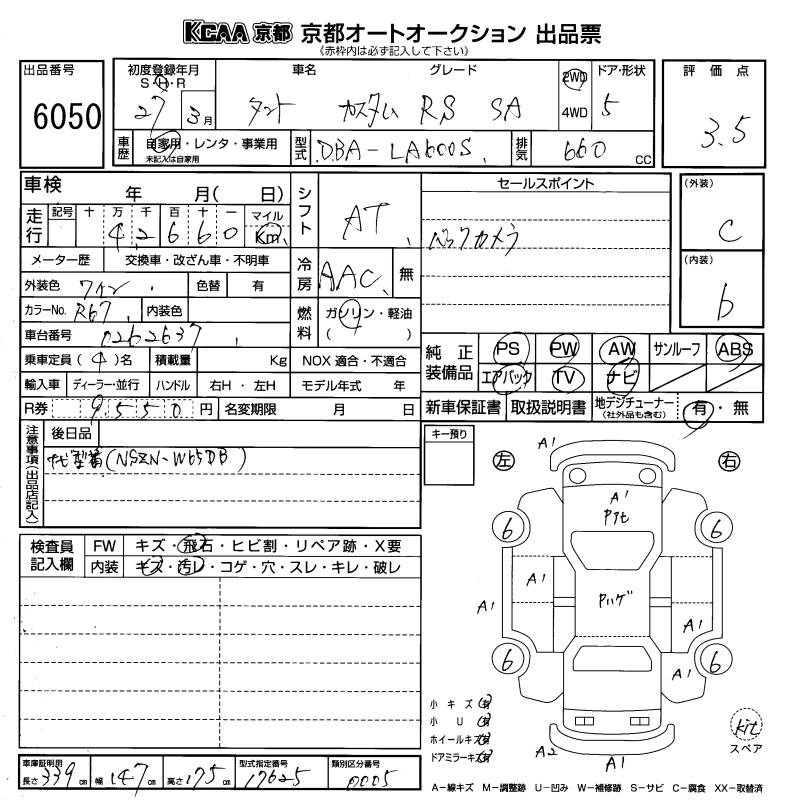 KCAA 京都 京都オートオークション 出品票
《赤枠内は必ず記入して下さい》
出品番号
6050
初度登録年月
S・H・R
27 3月
車名
タント
グレード
カスタム RS SA
2WD
4WD
ドア・形状
5
評価点
3.5
車歴
自家用・レンタ・事業用
未記入は自家用
型式
DBA-LA600S
排気
660 CC
車検 年 月( 日)
走行
記号 十 万 千 百 十 一 マイル
42660 Km
メーター歴 交換車・改ざん車・不明車
外装色 ワイン 色替 有
カラーNo. R67 内装色
車台番号 0262637
乗車定員 (4)名 積載量 Kg
輸入車 ディーラー・並行 ハンドル 右H・左H
R券 9550円 名変期限 月 日
シフト
AT
冷房
AAC 無
燃料
ガソリン・軽油
( )
NOX適合・不適合
モデル年式 年
セールスポイント
バックカメラ
(外装)
C
(内装)
b
純正装備品
PS PW AW サンルーフ ABS
エアバック TV ナビ
新車保証書 取扱説明書 地デジチューナー
(社外品も含む)
有・無
注意事項(出品店記入)
後日品
ナビ型番(NSZN-W65DB)
キー預り
検査員記入欄
FW キズ・飛石・ヒビ割・リペア跡・X要
内装 キズ・汚レ・コゲ・穴・スレ・キレ・破レ
左
右
A1
A1
Pアセ
6
6
A1
A1
Pハゲ
A1
6
A1
6
A2
A1
小キズ(有)
小U(有)
ホイールキズ(有)
ドアミラーキズ(有)
kit
スペア
車庫証明用
長さ 339cm 幅 147cm 高さ 175cm
型式指定番号
17625
類別区分番号
0005
A-線キズ M-調整跡 U-凹み W-補修跡 S-サビ C-腐食 XX-取替済